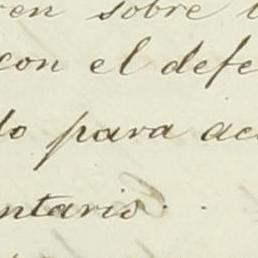 en sobre
con el defe
lo para ac
ntario.